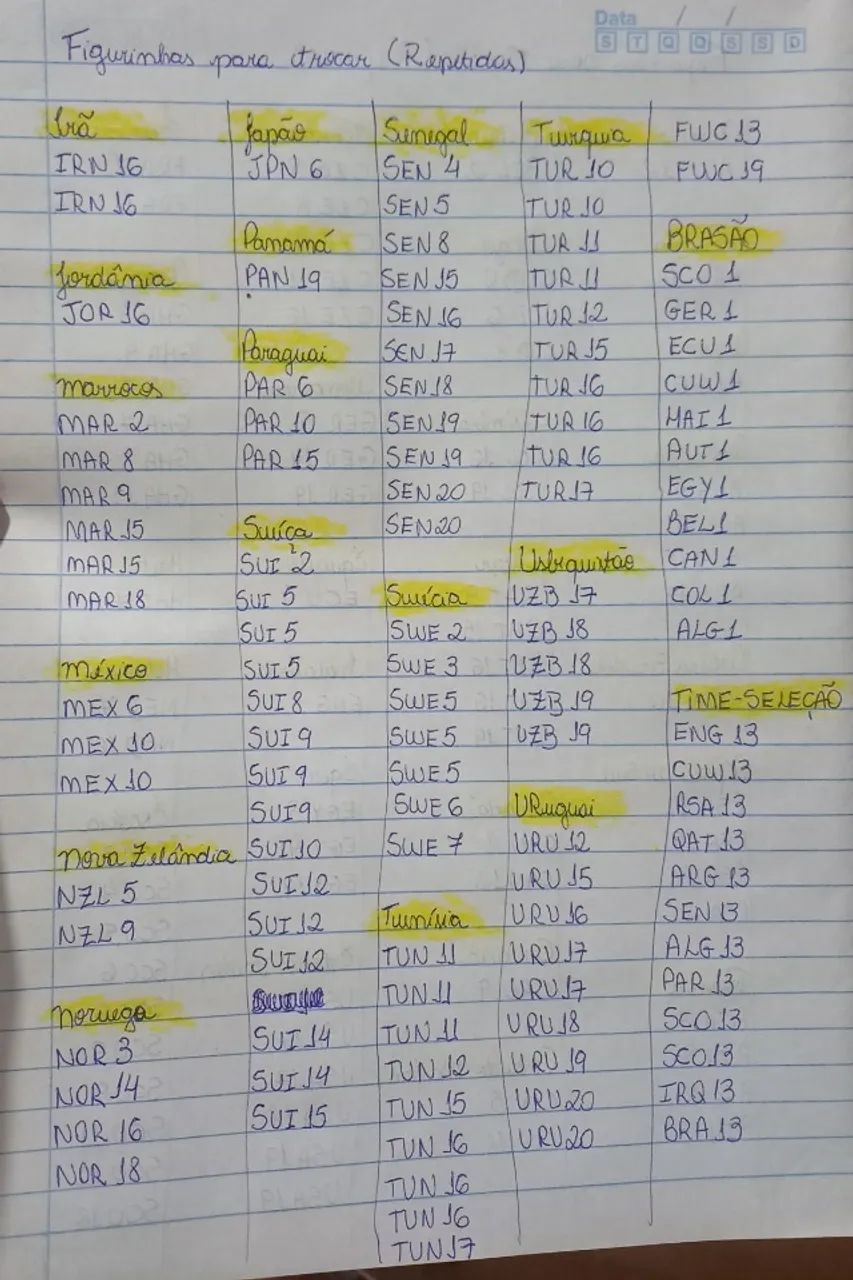 Data / /
S T Q Q S S D
Figurinhas para trocar (Repetidas)
Irã
IRN 16
IRN 16
Jordânia
JOR 16
Marrocos
MAR 2
MAR 8
MAR 9
MAR 15
MAR 15
MAR 18
México
MEX 6
MEX 10
MEX 10
Nova Zelândia
NZL 5
NZL 9
Noruega
NOR 3
NOR 14
NOR 16
NOR 18
Japão
JPN 6
Panamá
PAN 19
Paraguai
PAR 6
PAR 10
PAR 15
Suíça
SUI 2
SUI 5
SUI 5
SUI 5
SUI 8
SUI 9
SUI 9
SUI 9
SUI 10
SUI 12
SUI 12
SUI 12
SUI 14
SUI 14
SUI 15
Senegal
SEN 4
SEN 5
SEN 8
SEN 15
SEN 16
SEN 17
SEN 18
SEN 19
SEN 19
SEN 20
SEN 20
Suécia
SWE 2
SWE 3
SWE 5
SWE 5
SWE 5
SWE 6
SWE 7
Tunísia
TUN 11
TUN 11
TUN 11
TUN 12
TUN 15
TUN 16
TUN 16
TUN 16
TUN 17
Turquia
TUR 10
TUR 10
TUR 11
TUR 11
TUR 12
TUR 15
TUR 16
TUR 16
TUR 16
TUR 17
Usbequistão
UZB 17
UZB 18
UZB 18
UZB 19
UZB 19
URuguai
URU 12
URU 15
URU 16
URU 17
URU 17
URU 18
URU 19
URU 20
URU 20
FWC 13
FWC 19
BRASÃO
SCO 1
GER 1
ECU 1
CUW 1
HAI 1
AUT 1
EGY 1
BEL 1
CAN 1
COL 1
ALG 1
TIME-SELEÇÃO
ENG 13
CUW 13
RSA 13
QAT 13
ARG 13
SEN 13
ALG 13
PAR 13
SCO 13
SCO 13
IRQ 13
BRA 13